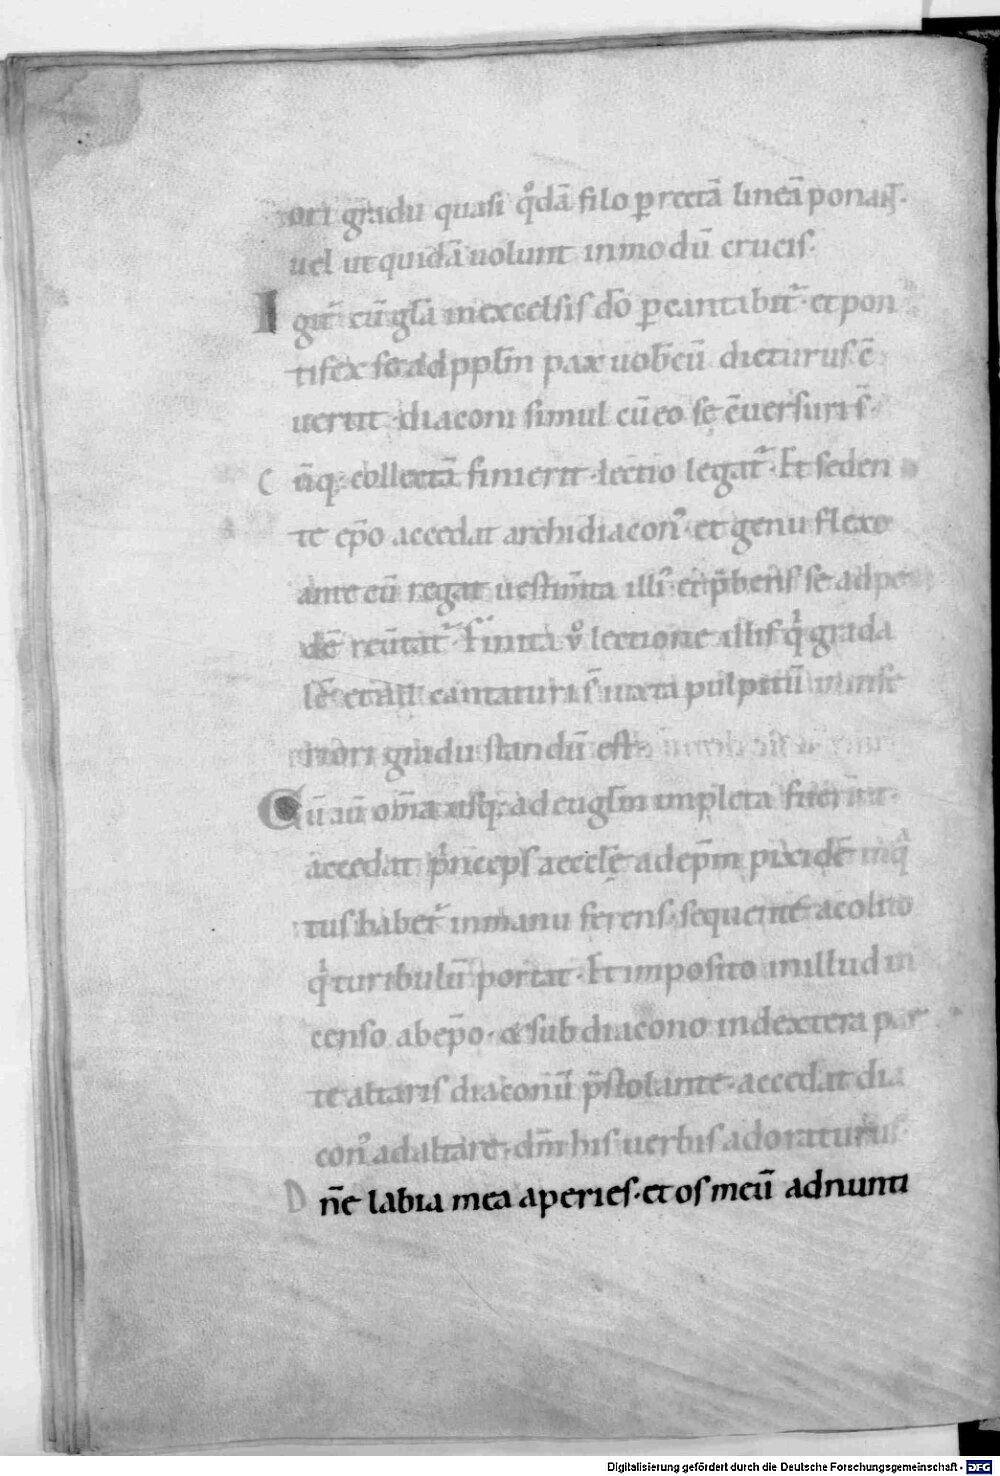 ori gradu quasi qͦdā filo ꝑ rectā lineā ponant᷑.
uel ut quidā uolunt inmodū crucis.
Igit᷑ cū gl̄a inexcelsis dō ꝑcantabit᷑. et pon
tifex se ad ppl̄m pax uob̄cū dicturus c̄
uertit. diaconi simul cū eo se c̄uersuri s̄.
Cūq; collectā finierit. lectio legat᷑. Et seden
te ep̄o accedat archidiacon᷒. et genu flexo
ante eū regat uestim̄ta illi᷒. et p̄bens se ad pe
dē reūtat᷑. Finita ů lectione illis qͥ grada
lē. et all̄ cantaturi s̄ iuxta pulpitū
riori gradu standū est.
Cū aū om̄a usq; ad eugl̄m impleta fuerint.
accedat pͥnceps aeccl̄ę ad ep̄m pixidē
tus habet᷑ inmanu ferens. sequente acolito
qͥ turibulū portat. Et imposito inillud in
censo ab ep̄o. & subdiacono indextera par
te altaris diaconū p̄stolante. accedat dia
con᷒ ad altare. dm̄ his uerbis adoraturus.
Dn̄e labia mea aperies. et os meū adnunti
Digitalisierung gefördert durch die Deutsche Forschungsgemeinschaft - DFG